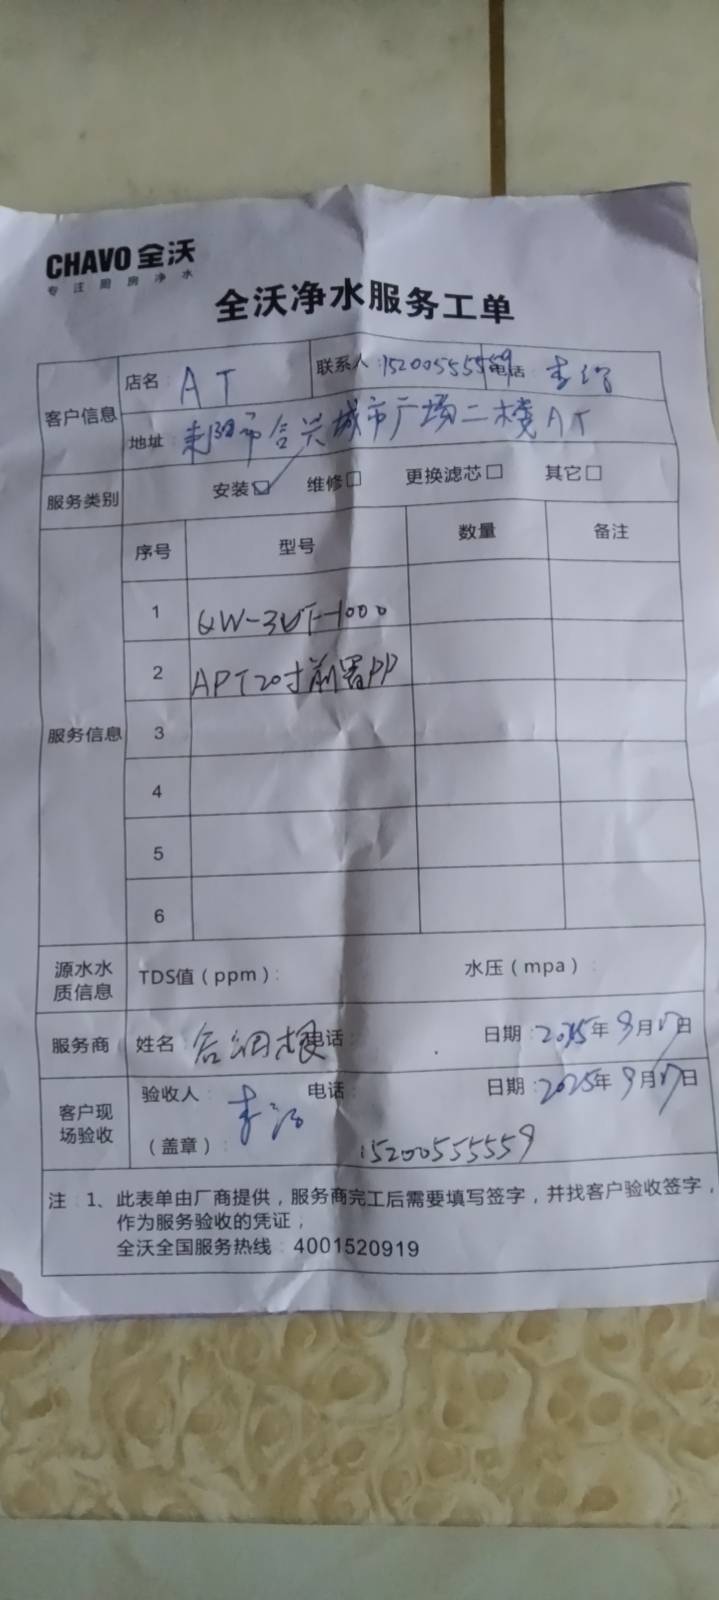 CHAVO 全沃
专注厨房净水
全沃净水服务工单
客户信息
店名: AT 联系人: 15200555559 电话:
地址: 耒阳市合兴城市广场二楼AT
服务类别 安装☑ 维修□ 更换滤芯□ 其它□
服务信息
序号 型号 数量 备注
1 QW-3UT-1000
2 APT20寸前置PP
3
4
5
6
源水水质信息 TDS值(ppm): 水压(mpa):
服务商 姓名: 电话: 日期: 2025年9月17日
客户现场验收 验收人: 电话: 日期: 2025年9月17日
(盖章): 15200555559
注:1、此表单由厂商提供,服务商完工后需要填写签字,并找客户验收签字,
作为服务验收的凭证;
全沃全国服务热线:4001520919